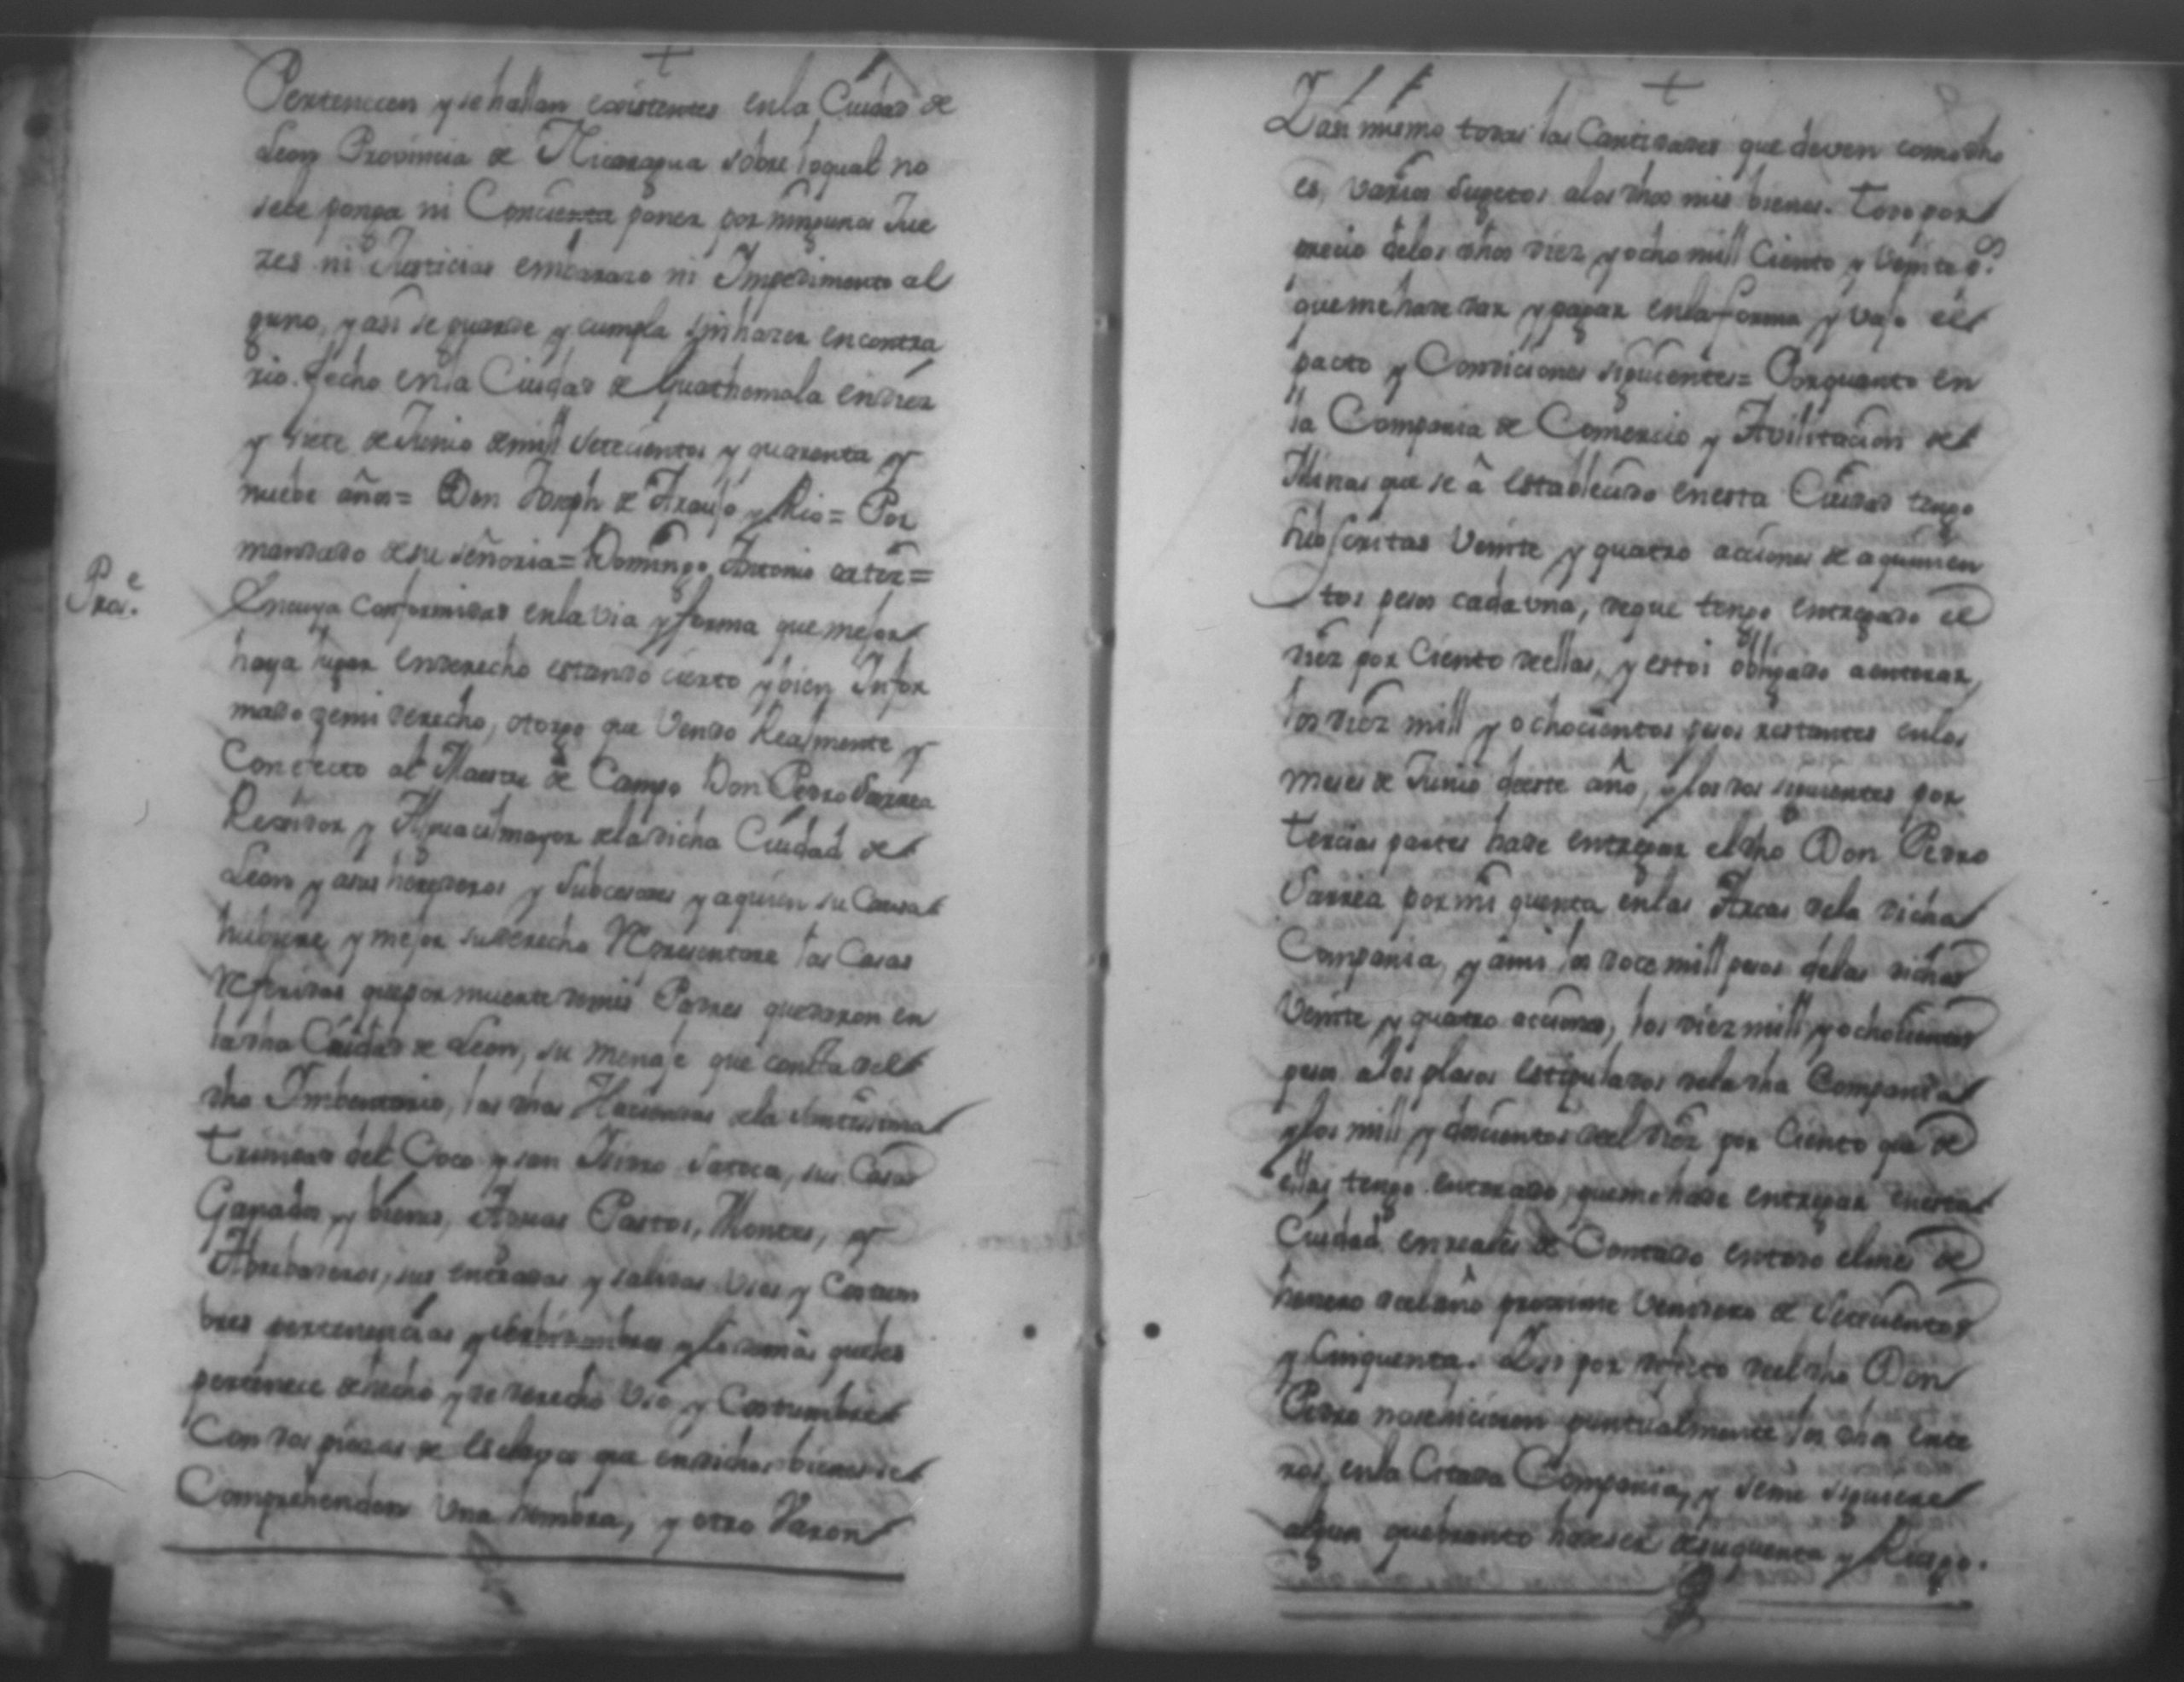 Pertenecen y se hallan existentes en la Ciudad de
Leon Provincia de Nicaragua sobre lo qual no
se le ponga ni Concienta poner por ningunos Jue
zes ni Justicias embarazo ni Impedimento al
guno, y assi se guarde y cumpla sin hazer en contra
rio. fecho en la Ciudad de Guathemala en diez
y siete de Junio de mill setecientos y quarenta y
nuebe años = Don Joseph de Araujo y Rio = Por
mandado de su señoria = Domingo Antonio
En cuya conformidad en la via y forma que mejor
haya lugar en derecho estando cierto y bien Infor
mado de mi derecho, otorgo que Vendo Realmente y
Con efecto al Maestre de Campo Don Pedro Sarria
Rexidor y Alguacil mayor de la dicha Ciudad de
Leon y a sus herederos y Subcesores y a quien su Causa
hubiere y mejor su derecho Representare las Casas
Referidas que por muerte de mis Padres quedaron en
la dha Ciudad de Leon, su menaje que consta del
dho Imbentario, las dhas Haciendas de la Santissima
Trinidad del Coco y san Isidro Satoca, sus Casas
Ganados y bienes, Aguas Pastos, Montes, y
Abrebaderos, sus entradas y salidas Usos y Costum
bres pertenencias y serbidumbres y lo demas que les
pertenece de hecho y de derecho Uso y Costumbre
Con dos piezas de Esclavos que en dichos bienes se
Comprehenden Una hembra, y otro Varon
Y assi mismo todas las Cantidades que deven como dho
es, varios Sugetos a los dhos mis bienes. Todo por
precio de los dhos diez y ocho mill Ciento y Veinte ps
que me hade dar y pagar en la forma y vajo el
pacto y Condiciones siguientes = Por quanto en
la Compania de Comercio y Avilitacion de
Minas que se â establecido en esta Ciudad tengo
subscritas Veinte y quatro acciones de a quinien
tos pesos cada una, de que tengo entregado el
diez por Ciento de ellas, y estoi obligado a enterar
los diez mill y ochocientos pesos restantes en los
meses de Junio de este año, y los dos siguientes por
tercias partes hade entregar el dho Don Pedro
Sarria por mi quenta en las Arcas de la dicha
Compania, y a mi los doce mill pesos de las dichas
Veinte y quatro acciones, los diez mill y ochocientos
pesos a los plasos estipulados de la dha Compania
y los mill y docientos del diez por Ciento que de
ellas tengo enterado, que me hade entregar en esta
Ciudad en reales de Contado en todo el mes de
henero del año proximo Venidero de Setecientos
y Cinquenta. Y si por defecto del dho Don
Pedro no se hicieren puntualmente los dhos ente
ros, en la Citada Compania, y se me siguiere
algun quebranto hade ser de su quenta y Riesgo.